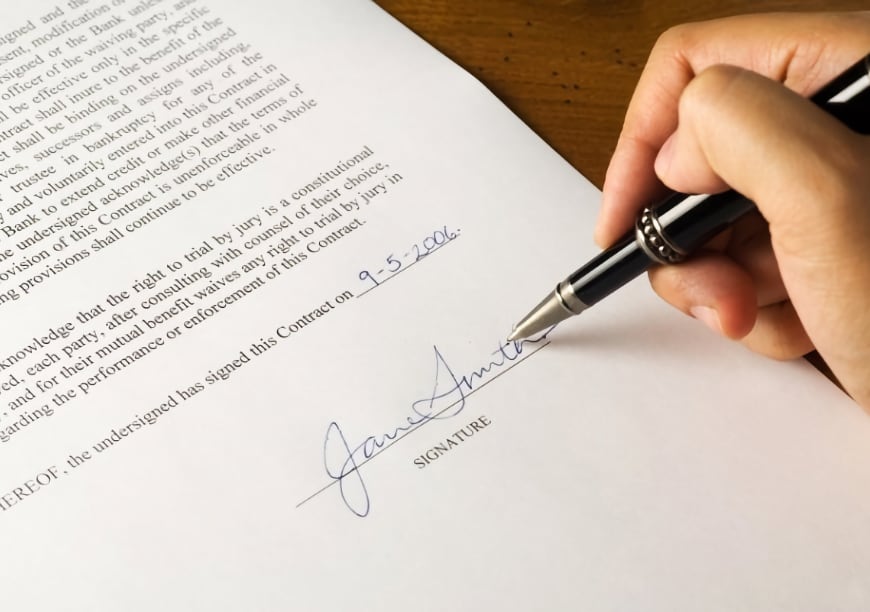 signed and the
sent, modification of
signed or the Bank unless
officer of the waiving party, and
ll be effective only in the specific
ntract shall inure to the benefit of the
ct shall be binding on the undersigned
ves, successors and assigns including,
r trustee in bankruptcy for any of the
y and voluntarily entered into this Contract in
Bank to extend credit or make other financial
he undersigned acknowledge(s) that the terms of
rovision of this Contract is unenforceable in whole
ng provisions shall continue to be effective.
knowledge that the right to trial by jury is a constitutional
ved, each party, after consulting with counsel of their choice,
, and for their mutual benefit waives any right to trial by jury in
garding the performance or enforcement of this Contract.
HEREOF, the undersigned has signed this Contract on 9-5-2006.
Jane Smith
SIGNATURE